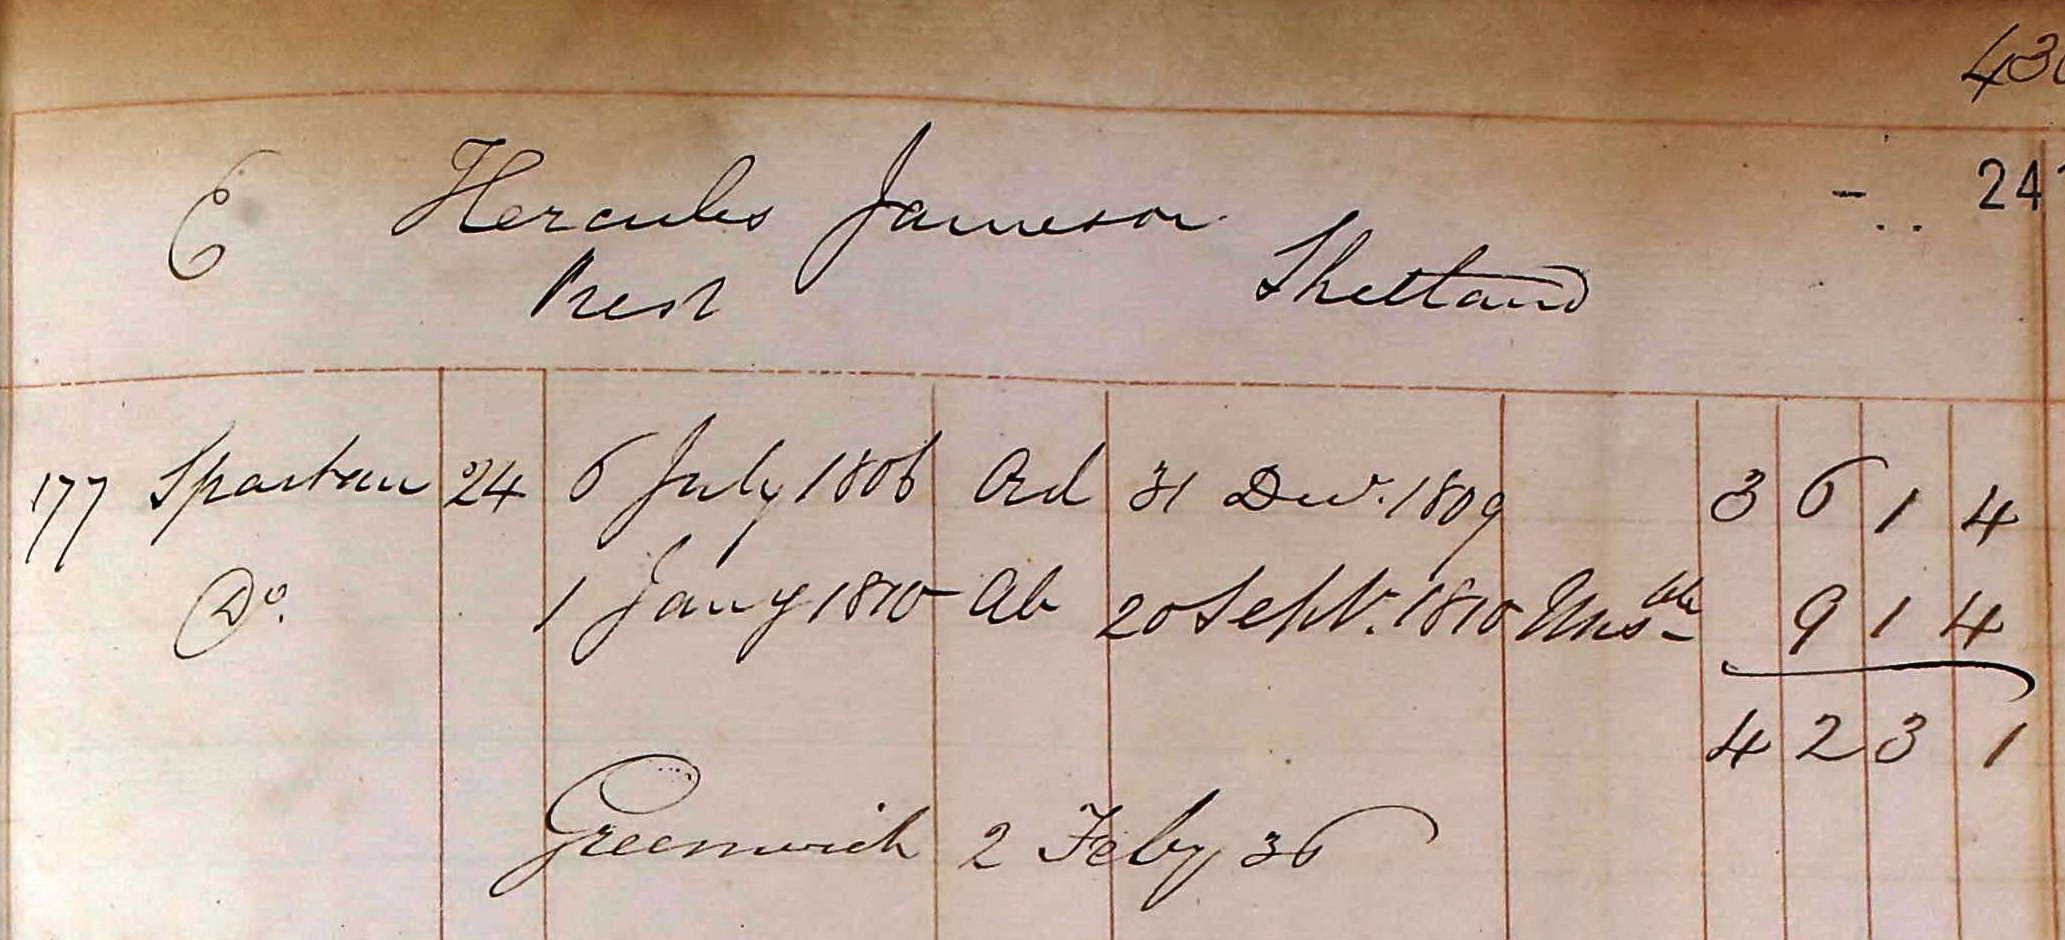 43
24
E Hercules Jameson
Shetland
177 Spartan 24 6 July 1806 Ord 31 Decr. 1809 3 6 1 4
Do. 1 Jany 1810 Ab 20 Septr. 1810 Unsble 9 1 4
4 2 3 1
Greenwich 2 Feby 36